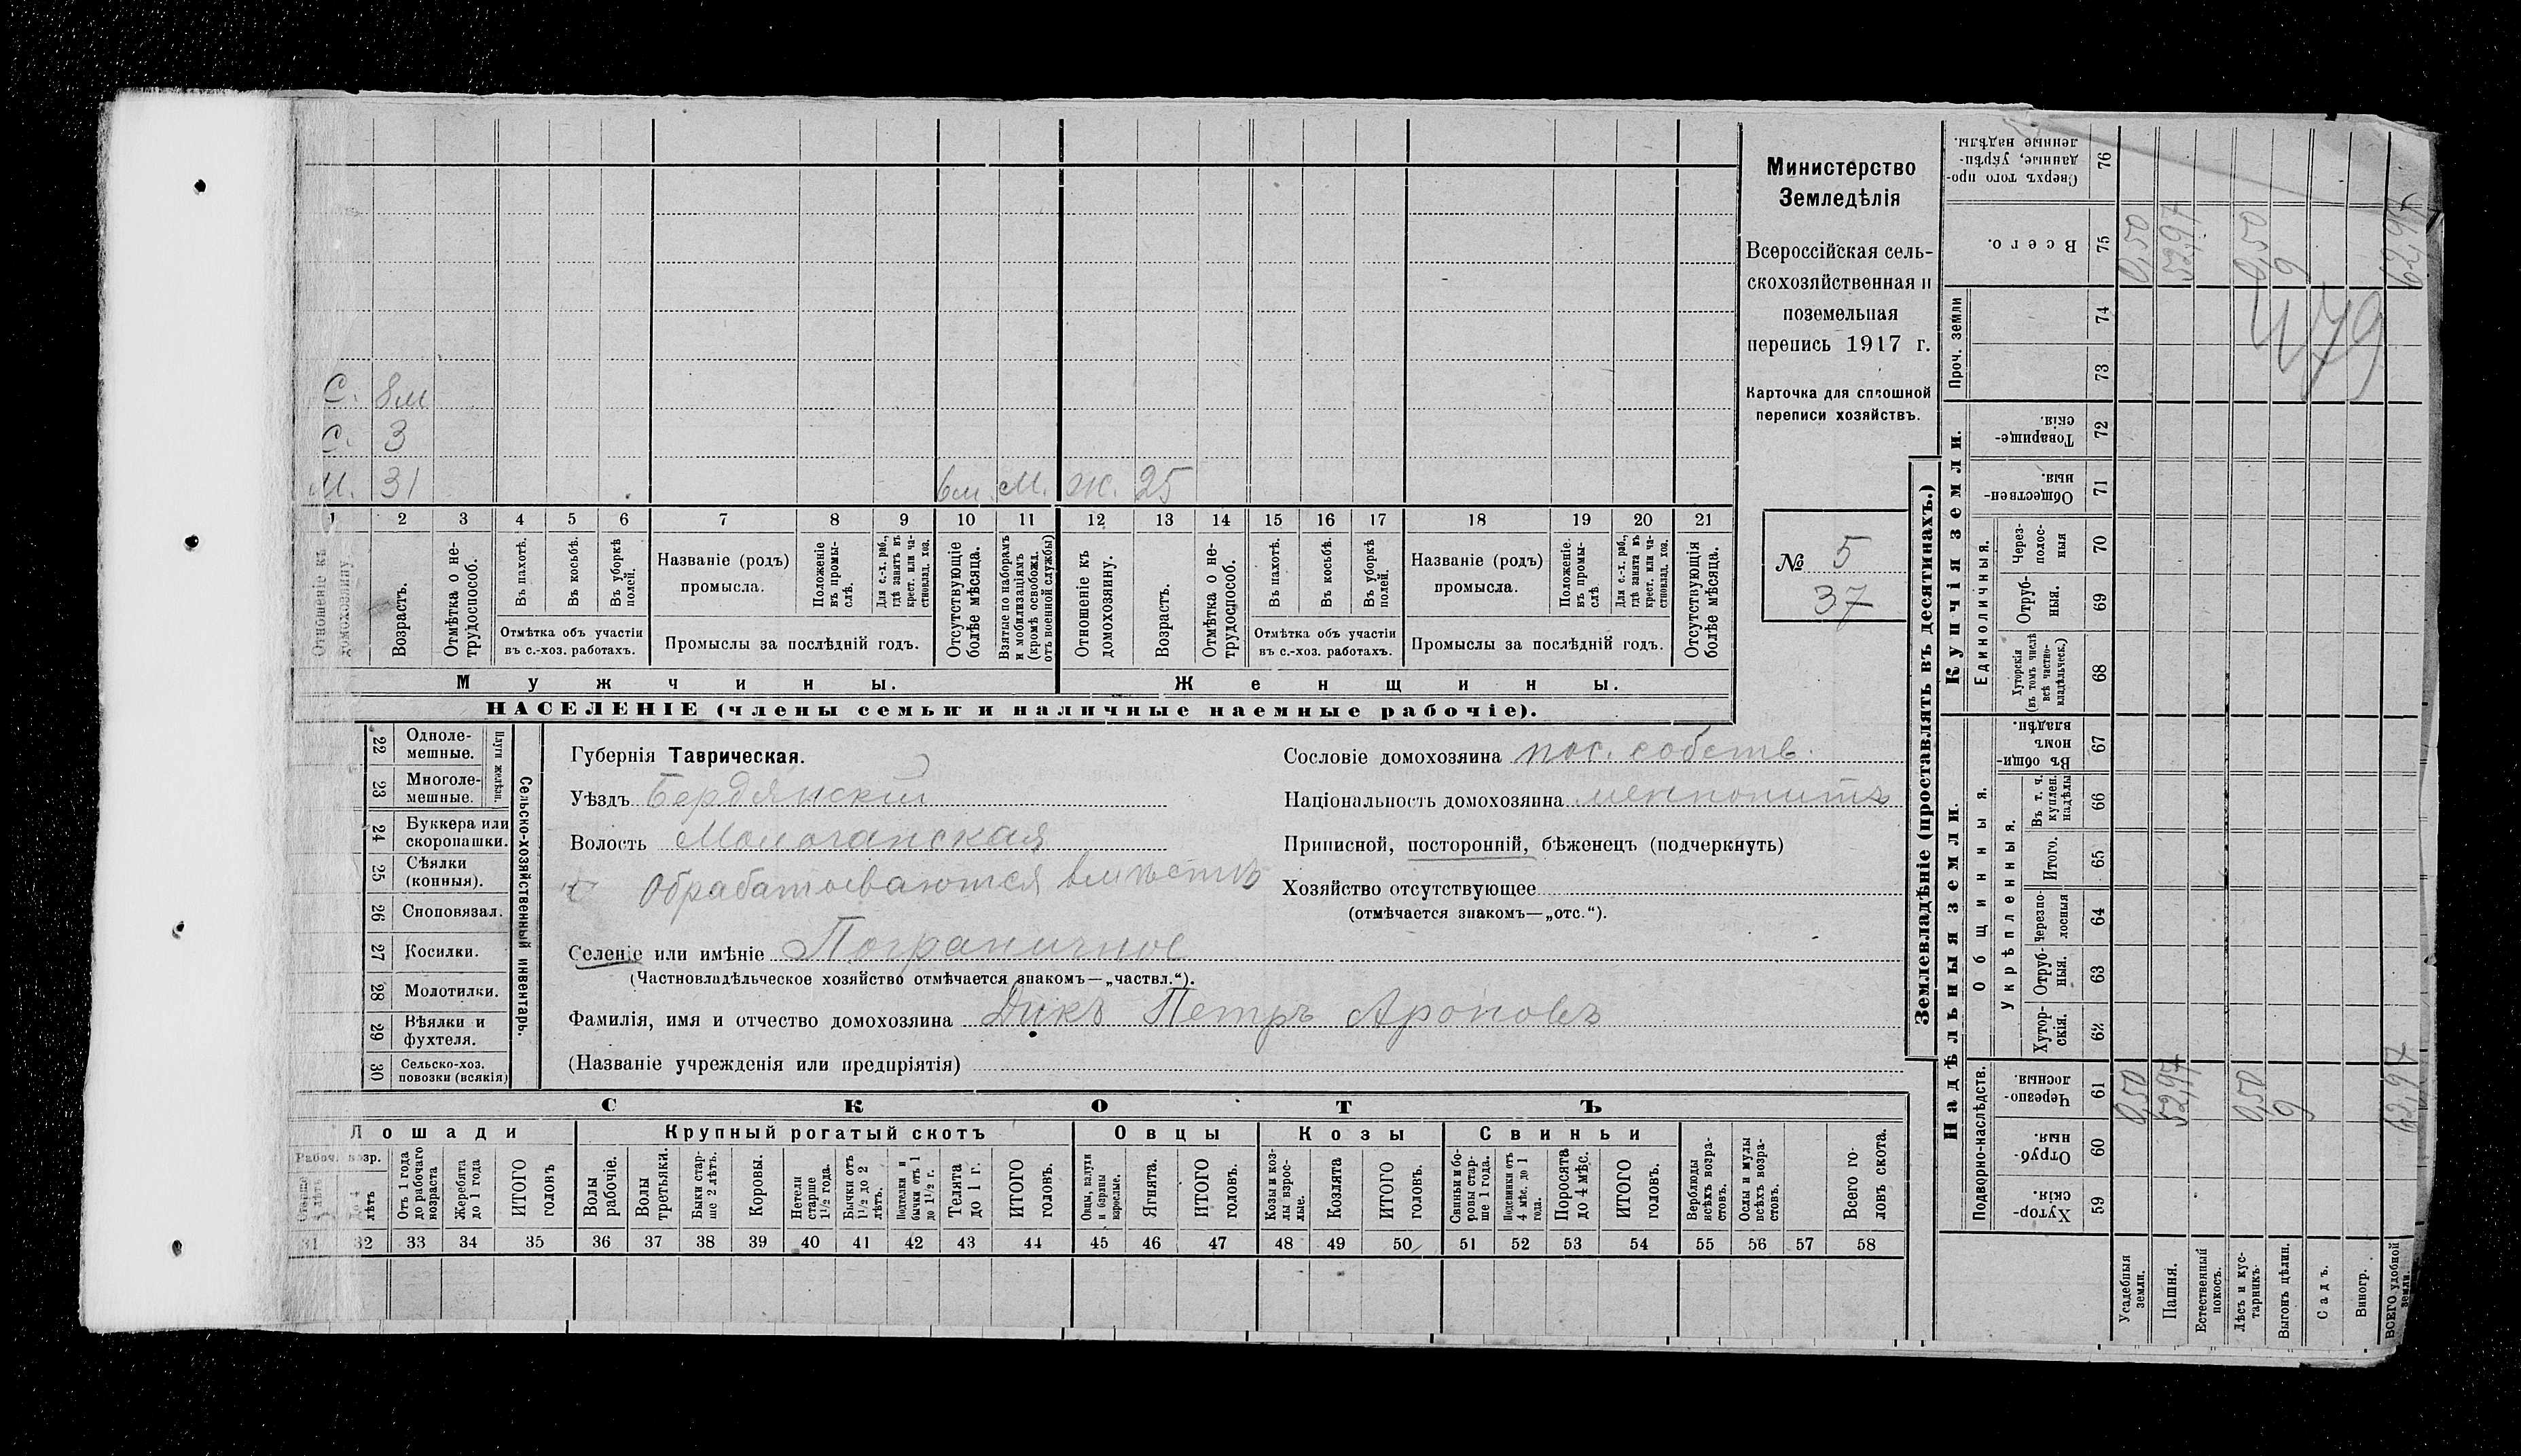 С. 8м
С. 3
М. 31 6м. М. Ж. 25
1 2 3 4 5 6 7 8 9 10 11 12 13 14 15 16 17 18 19 20 21
Отношеніе къ домохозяину.
Возрастъ.
Отмѣтка о нетрудоспособ.
Въ пахотѣ.
Въ косьбѣ.
Въ уборкѣ полей.
Отмѣтка объ участіи
въ с.-хоз. работахъ.
Названіе (родъ)
промысла.
Положеніе въ промыслѣ.
Для с.-х. раб., гдѣ занятъ въ крест. или частновлад. хоз.
Промыслы за послѣдній годъ.
Отсутствующіе болѣе мѣсяца.
Взятые по наборамъ и мобилизаціямъ (кромѣ освобожд. отъ военной службы)
Отношеніе къ домохозяину.
Возрастъ.
Отмѣтка о нетрудоспособ.
Въ пахотѣ.
Въ косьбѣ.
Въ уборкѣ полей.
Отмѣтка объ участіи
въ с.-хоз. работахъ.
Названіе (родъ)
промысла.
Положеніе въ промыслѣ
Для с.-х. раб., гдѣ занята въ крест. или частновлад. хоз.
Промыслы за послѣдній годъ.
Отсутствующія болѣе мѣсяца.
Мужчины.
Женщины.
НАСЕЛЕНІЕ (члены семьи и наличные наемные рабочіе).
Министерство
Земледѣлія
Всероссійская сель-
скохозяйственная и
поземельная
перепись 1917 г.
Карточка для сплошной
переписи хозяйствъ.
№ 5
37
22 Одноле-
мешные.
23 Многоле-
мешные.
Плуги желѣзн.
24 Буккера или
скоропашки.
25 Сѣялки
(конныя).
26 Сноповязал.
27 Косилки.
28 Молотилки.
29 Вѣялки и
фухтеля.
30 Сельско-хоз.
повозки (всякія)
Сельско-хозяйственный инвентарь.
Губернія Таврическая.
Уѣздъ Бердянскій
Волость Молочанская
Обрабатываются вмѣстѣ
Селеніе или имѣніе Пограничное
(Частновладѣльческое хозяйство отмѣчается знакомъ—„частвл.“).
Фамилія, имя и отчество домохозяина Дикъ Петръ Ароновъ
(Названіе учрежденія или предпріятія)
Сословіе домохозяина пос. собств.
Національность домохозяина меннонитъ
Приписной, посторонній, бѣженецъ (подчеркнуть)
Хозяйство отсутствующее
(отмѣчается знакомъ—„отс.“).
СКОТЪ
Лошади Крупный рогатый скотъ Овцы Козы Свиньи
Рабоч. возр.
лѣтъ
Отъ 1 года до рабочаго возраста
Жеребята до 1 года
ИТОГО головъ
Волы рабочіе.
Волы третьяки.
Быки старше 2 лѣтъ.
Коровы.
Нетели старше 1½ года.
Бычки отъ 1½ до 2 лѣтъ.
Подтелки и бычки отъ 1 до 1½ г.
Телята до 1 г.
ИТОГО головъ.
Овцы, валухи и бараны взрослые.
Ягнята.
ИТОГО головъ.
Козы и козлы взрослые.
Козлята
ИТОГО головъ.
Свиньи и боровы старше 1 года.
Подсвинки отъ 4 мѣс. до 1 года.
Поросята до 4 мѣс.
ИТОГО головъ.
Верблюды всѣхъ возрастовъ.
Ослы и мулы всѣхъ возрастовъ.
Всего головъ скота.
31 32 33 34 35 36 37 38 39 40 41 42 43 44 45 46 47 48 49 50 51 52 53 54 55 56 57 58
Землевладѣніе (проставлять въ десятинахъ.)
Надѣльныя земли.
Купчія земли.
Проч. земли
Подворно-наслѣдств.
Общинныя.
Укрѣпленныя.
Единоличныя.
Хуторскія. 59
Отрубныя. 60
Черезполосныя. 61
Хуторскія. 62
Отрубныя. 63
Черезполосныя 64
Итого. 65
Въ т. ч. куплен. надѣлы 66
Въ общинномъ владѣн. 67
Хуторскія (въ томъ числѣ всѣ частновладѣльческ.) 68
Отрубныя. 69
Черезполосныя 70
Общественныя. 71
Товарищескія. 72
73
74
Всего. 75
Сверхъ того проданные, укрѣпленные надѣлы. 76
Усадебныя земли. 0,50 0,50
Пашня. 52,97 52,97
Естественный покосъ.
Лѣсъ и кустарникъ. 0,50 0,50
Выгонъ цѣлин. 9 9
Садъ.
Виногр.
ВСЕГО удобной земли. 62,97 62,97
479